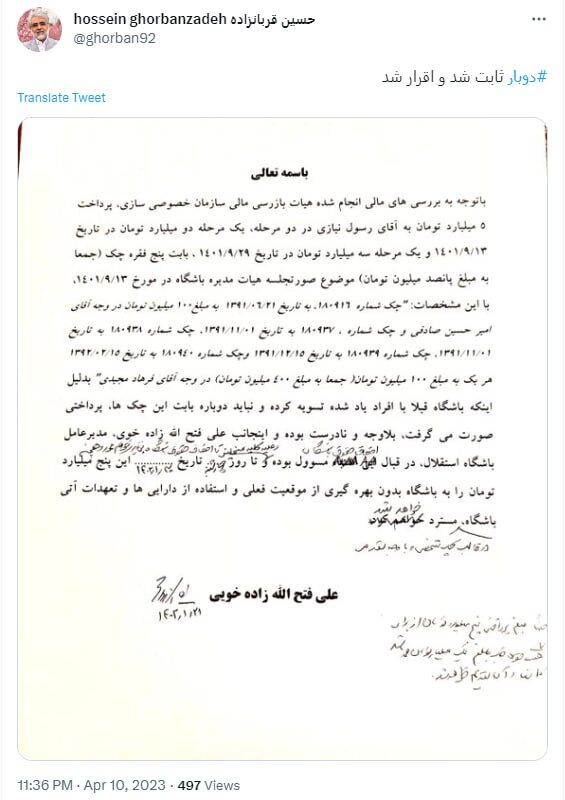 hossein ghorbanzadeh حسین قربانزاده
@ghorban92
#دوبار ثابت شد و اقرار شد
Translate Tweet
باسمه تعالی
باتوجه به بررسی های مالی انجام شده هیات بازرسی مالی سازمان خصوصی سازی، پرداخت
۵ میلیارد تومان به آقای رسول نیازی در دو مرحله، یک مرحله دو میلیارد تومان در تاریخ
۱۴۰۱/۹/۱۳ و یک مرحله سه میلیارد تومان در تاریخ ۱۴۰۱/۹/۲۹، بابت پنج فقره چک (جمعا
به مبلغ پانصد میلیون تومان) موضوع صورتجلسه هیات مدیره باشگاه در مورخ ۱۴۰۱/۹/۱۳،
با این مشخصات: "چک شماره ۱۸۰۹۱۶، به تاریخ ۱۳۹۱/۰۶/۲۱ به مبلغ ۱۰۰ میلیون تومان در وجه آقای
امیر حسین صادقی و چک شماره ۱۸۰۹۳۷، به تاریخ ۱۳۹۱/۱۱/۰۱، چک شماره ۱۸۰۹۳۸ به تاریخ
۱۳۹۱/۱۱/۰۱، چک شماره ۱۸۰۹۳۹ به تاریخ ۱۳۹۱/۱۲/۱۵ وچک شماره ۱۸۰۹۴۰ به تاریخ ۱۳۹۲/۰۲/۱۵
هر یک به مبلغ ۱۰۰ میلیون تومان( جمعا به مبلغ ۴۰۰ میلیون تومان) در وجه آقای فرهاد مجیدی" بدلیل
اینکه باشگاه قبلا با افراد یاد شده تسویه کرده و نباید دوباره بابت این چک ها، پرداختی
صورت می گرفت، بلاوجه و نادرست بوده و اینجانب علی فتح الله زاده خوی، مدیرعامل
باشگاه استقلال، در قبال مسوول بوده و تا روز تاریخ ۱۴۰۲/۱/۳۱ این پنج میلیارد
تومان را به باشگاه بدون بهره گیری از موقعیت فعلی و استفاده از دارایی ها و تعهدات آتی
باشگاه، مسترد خواهد شد
علی فتح الله زاده خویی
۱۴۰۲،۱،۲۱
11:36 PM · Apr 10, 2023 · 497 Views